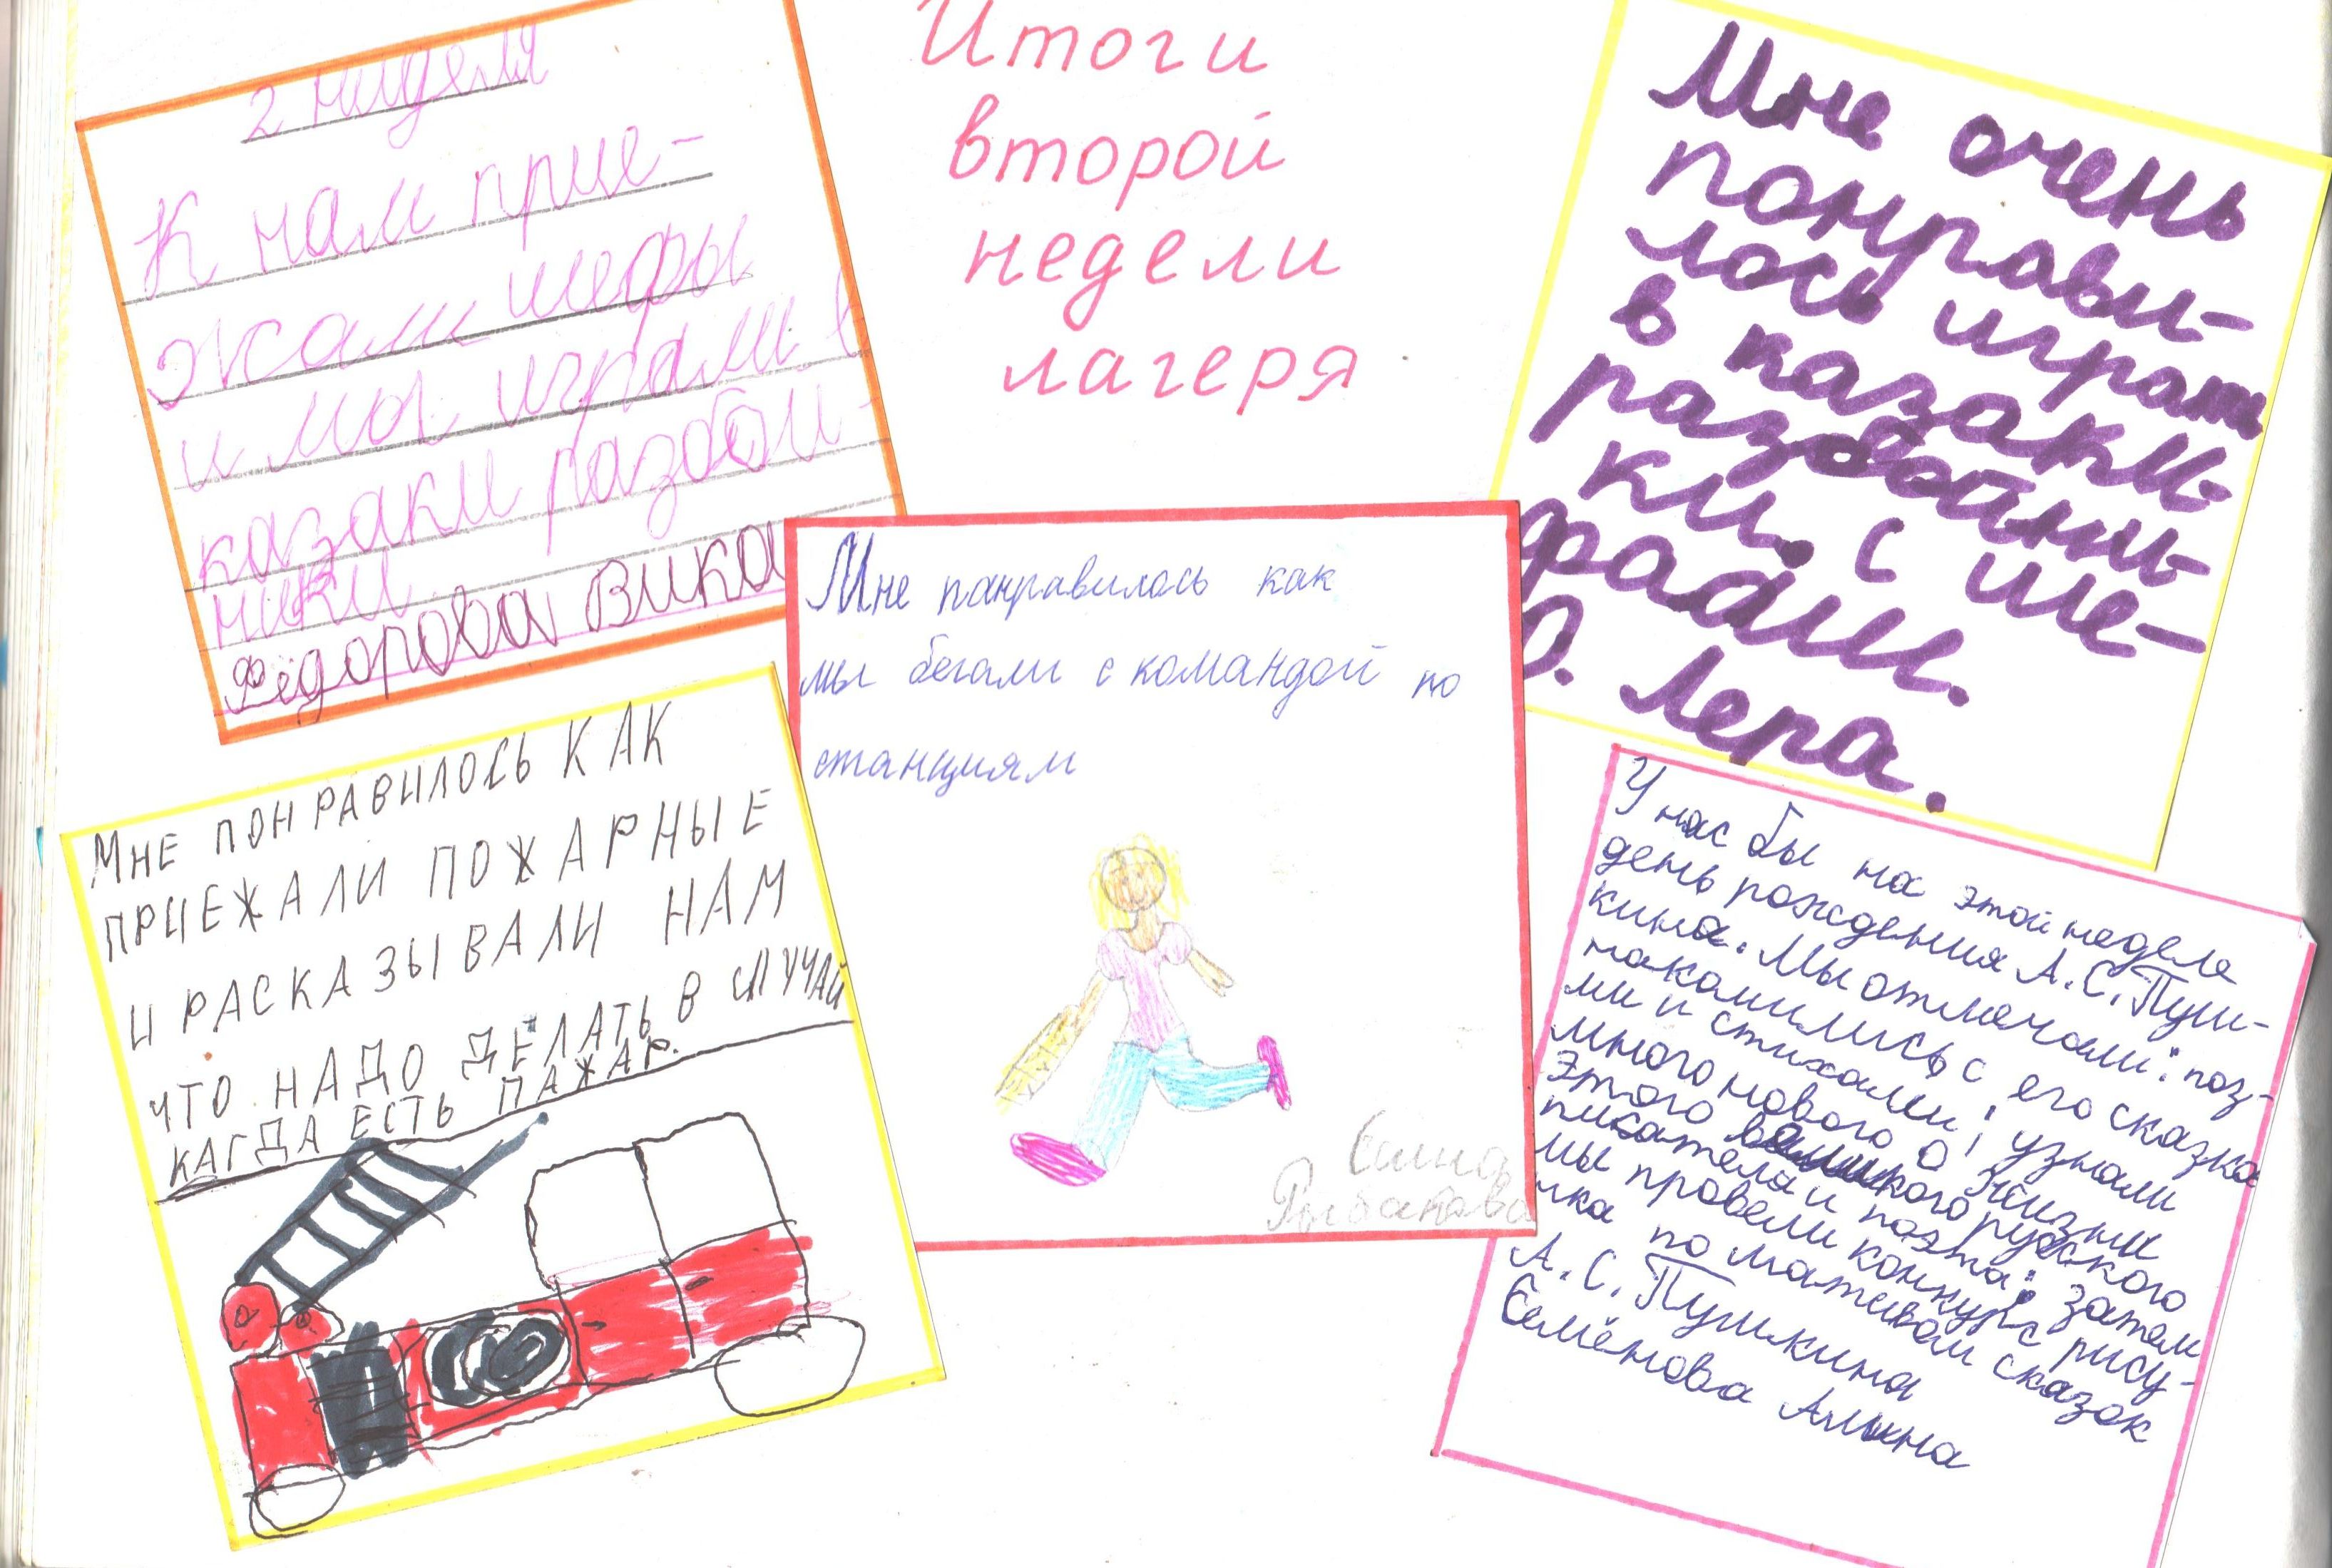 Итоги
второй
недели
лагеря
2 ниделя
К нам прие-
жали шефы
и мы играли в
казаки разбой-
ники
Фёдорова Вика
Мне очень
понрави-
лось играть
в казаки-
разбойни-
ки. с ше-
фами.
О. Лера.
Мне панравилось как
мы бегали с командой по
станциям
Рыбакова
Мне понравилось как
приежали пожарные
и расказывали нам
что надо делать в случай
кагда есть пажар.
У нас бы на этой неделе
день рождения А.С. Пуш-
кина. Мы отмечали: поз-
накомились с его сказка
ми и стихами; узнали
много нового о жизни
этого великого русского
писателя и поэта; затем
мы провели конкурс рису-
нка по мативам сказок
А.С. Пушкина
Семёнова Алина